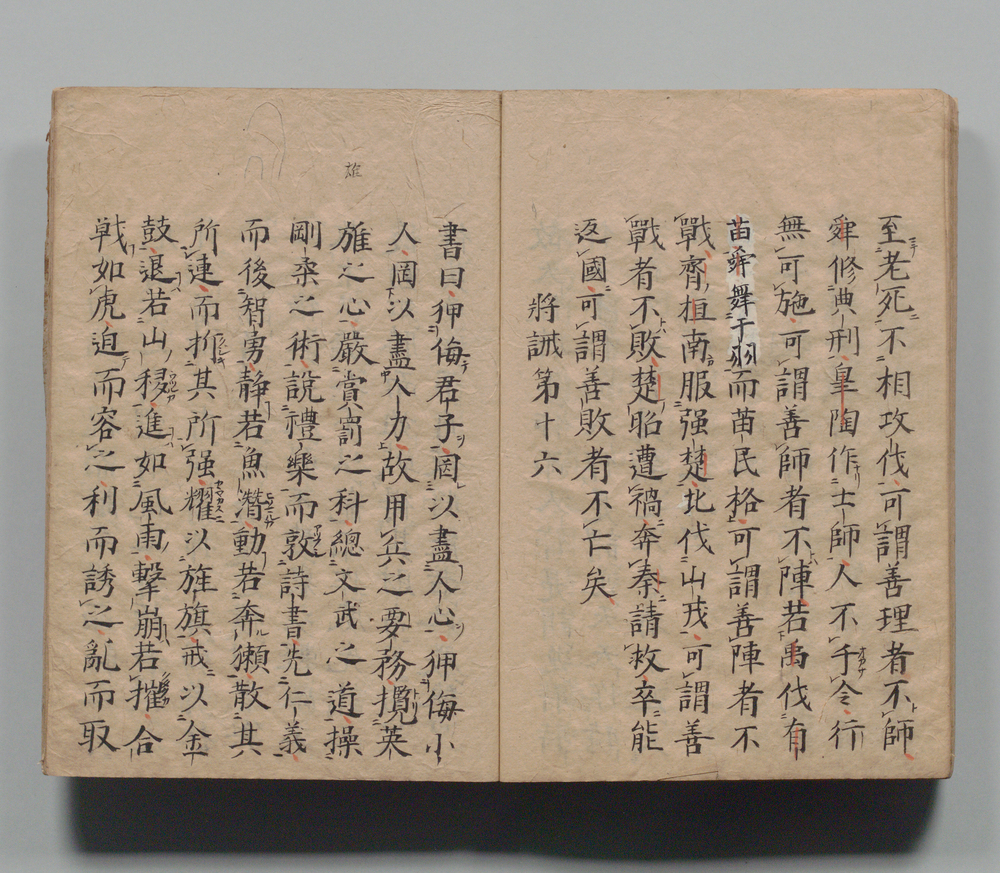 至老死不相攻伐可謂善理者不師
舜修典刑皇陶作士師人不于令行
無可施可謂善師者不陣若禹伐有
苗舜舞于羽而苗民格可謂善陣者不
戰齊桓南服强楚北伐山戎可謂善
戰者不敗楚昭遭禍奔秦請救卒能
返國可謂善敗者不亡矣
將誡第十六
書曰狎侮君子罔以盡人心狎侮小
人罔以盡人力故用兵之要務攬英
雄
旌之心嚴賞罰之科總文武之道操
剛柔之術說禮樂而敦詩書先仁義
而後智勇静若魚潛動若奔獺散其
所連而折其所强耀以旌旗戒以金
鼓退若山移進如風雨擊崩若摧合
戰如虎迫而容之利而誘之亂而取